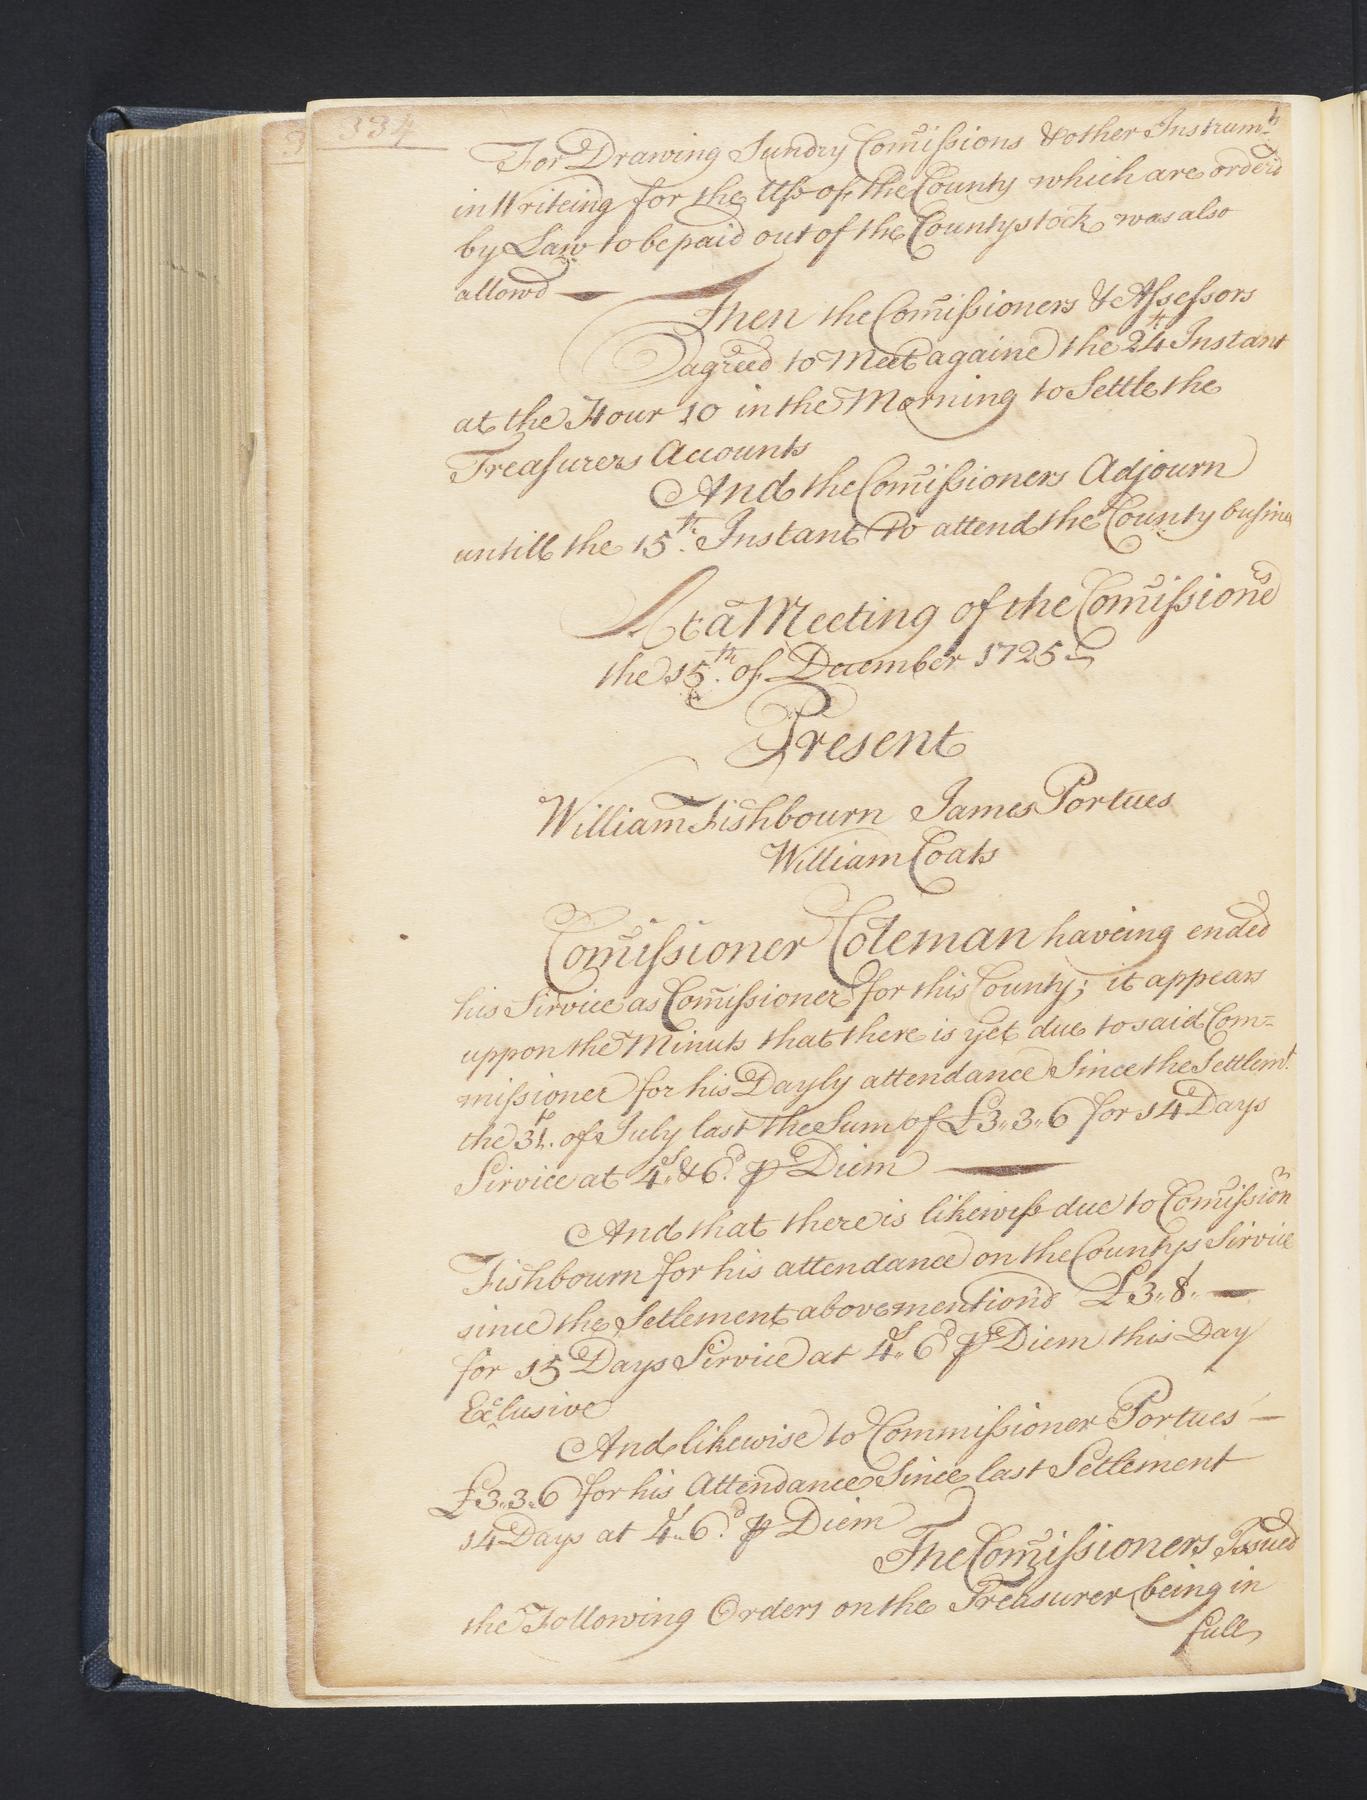 334
For Drawing Sundry Com̃issions & other Instrumts
in Writeing for the Use of the County which are order'd
by Law to be paid out of the County stock was also
allowd
Then the Com̃issioners & Assessors
agreed to Meet againe the 24th Instant
at the Hour 10 in the Morning to Settle the
Treasurers Accounts
And the Com̃issioners Adjourn
untill the 15th Instant to attend the County busines
At a Meeting of the Com̃issione's
the 15th of December 1725
Present
William Fishbourn James Portues
William Coats
Com̃issioner Coleman haveing ended
his Sirvice as Com̃issioner for this County; it appears
uppon the Minuts that there is yet due to said Com=
missioner for his Dayly attendance Since the Settlemt.
the 31st. of July last the Sum of £3..3..6 for 14 Days
Sirvice at 4s. & 6d. ꝑ Diem
And that there is likewise due to Com̃issionr
Fishbourn for his attendance on the Countys Sirvice
since the Setlement above mention'd £3..8..—
for 15 Days Sirvice at 4s.. 6d ꝑ Diem this Day
Exclusive
And likewise to Commissioner Portues —
£3..3..6 for his Attendance Since last Setlement
14 Days at 4s.. 6d. ꝑ Diem
The Com̃issioners Issued
the Following Orders on the Treasurer being in
full